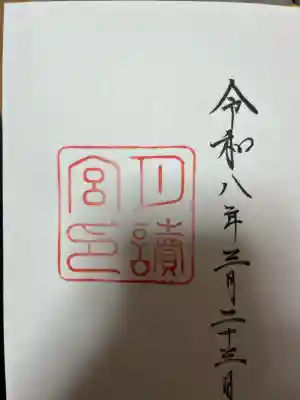 令和八年三月二十三日
月讀
宮印